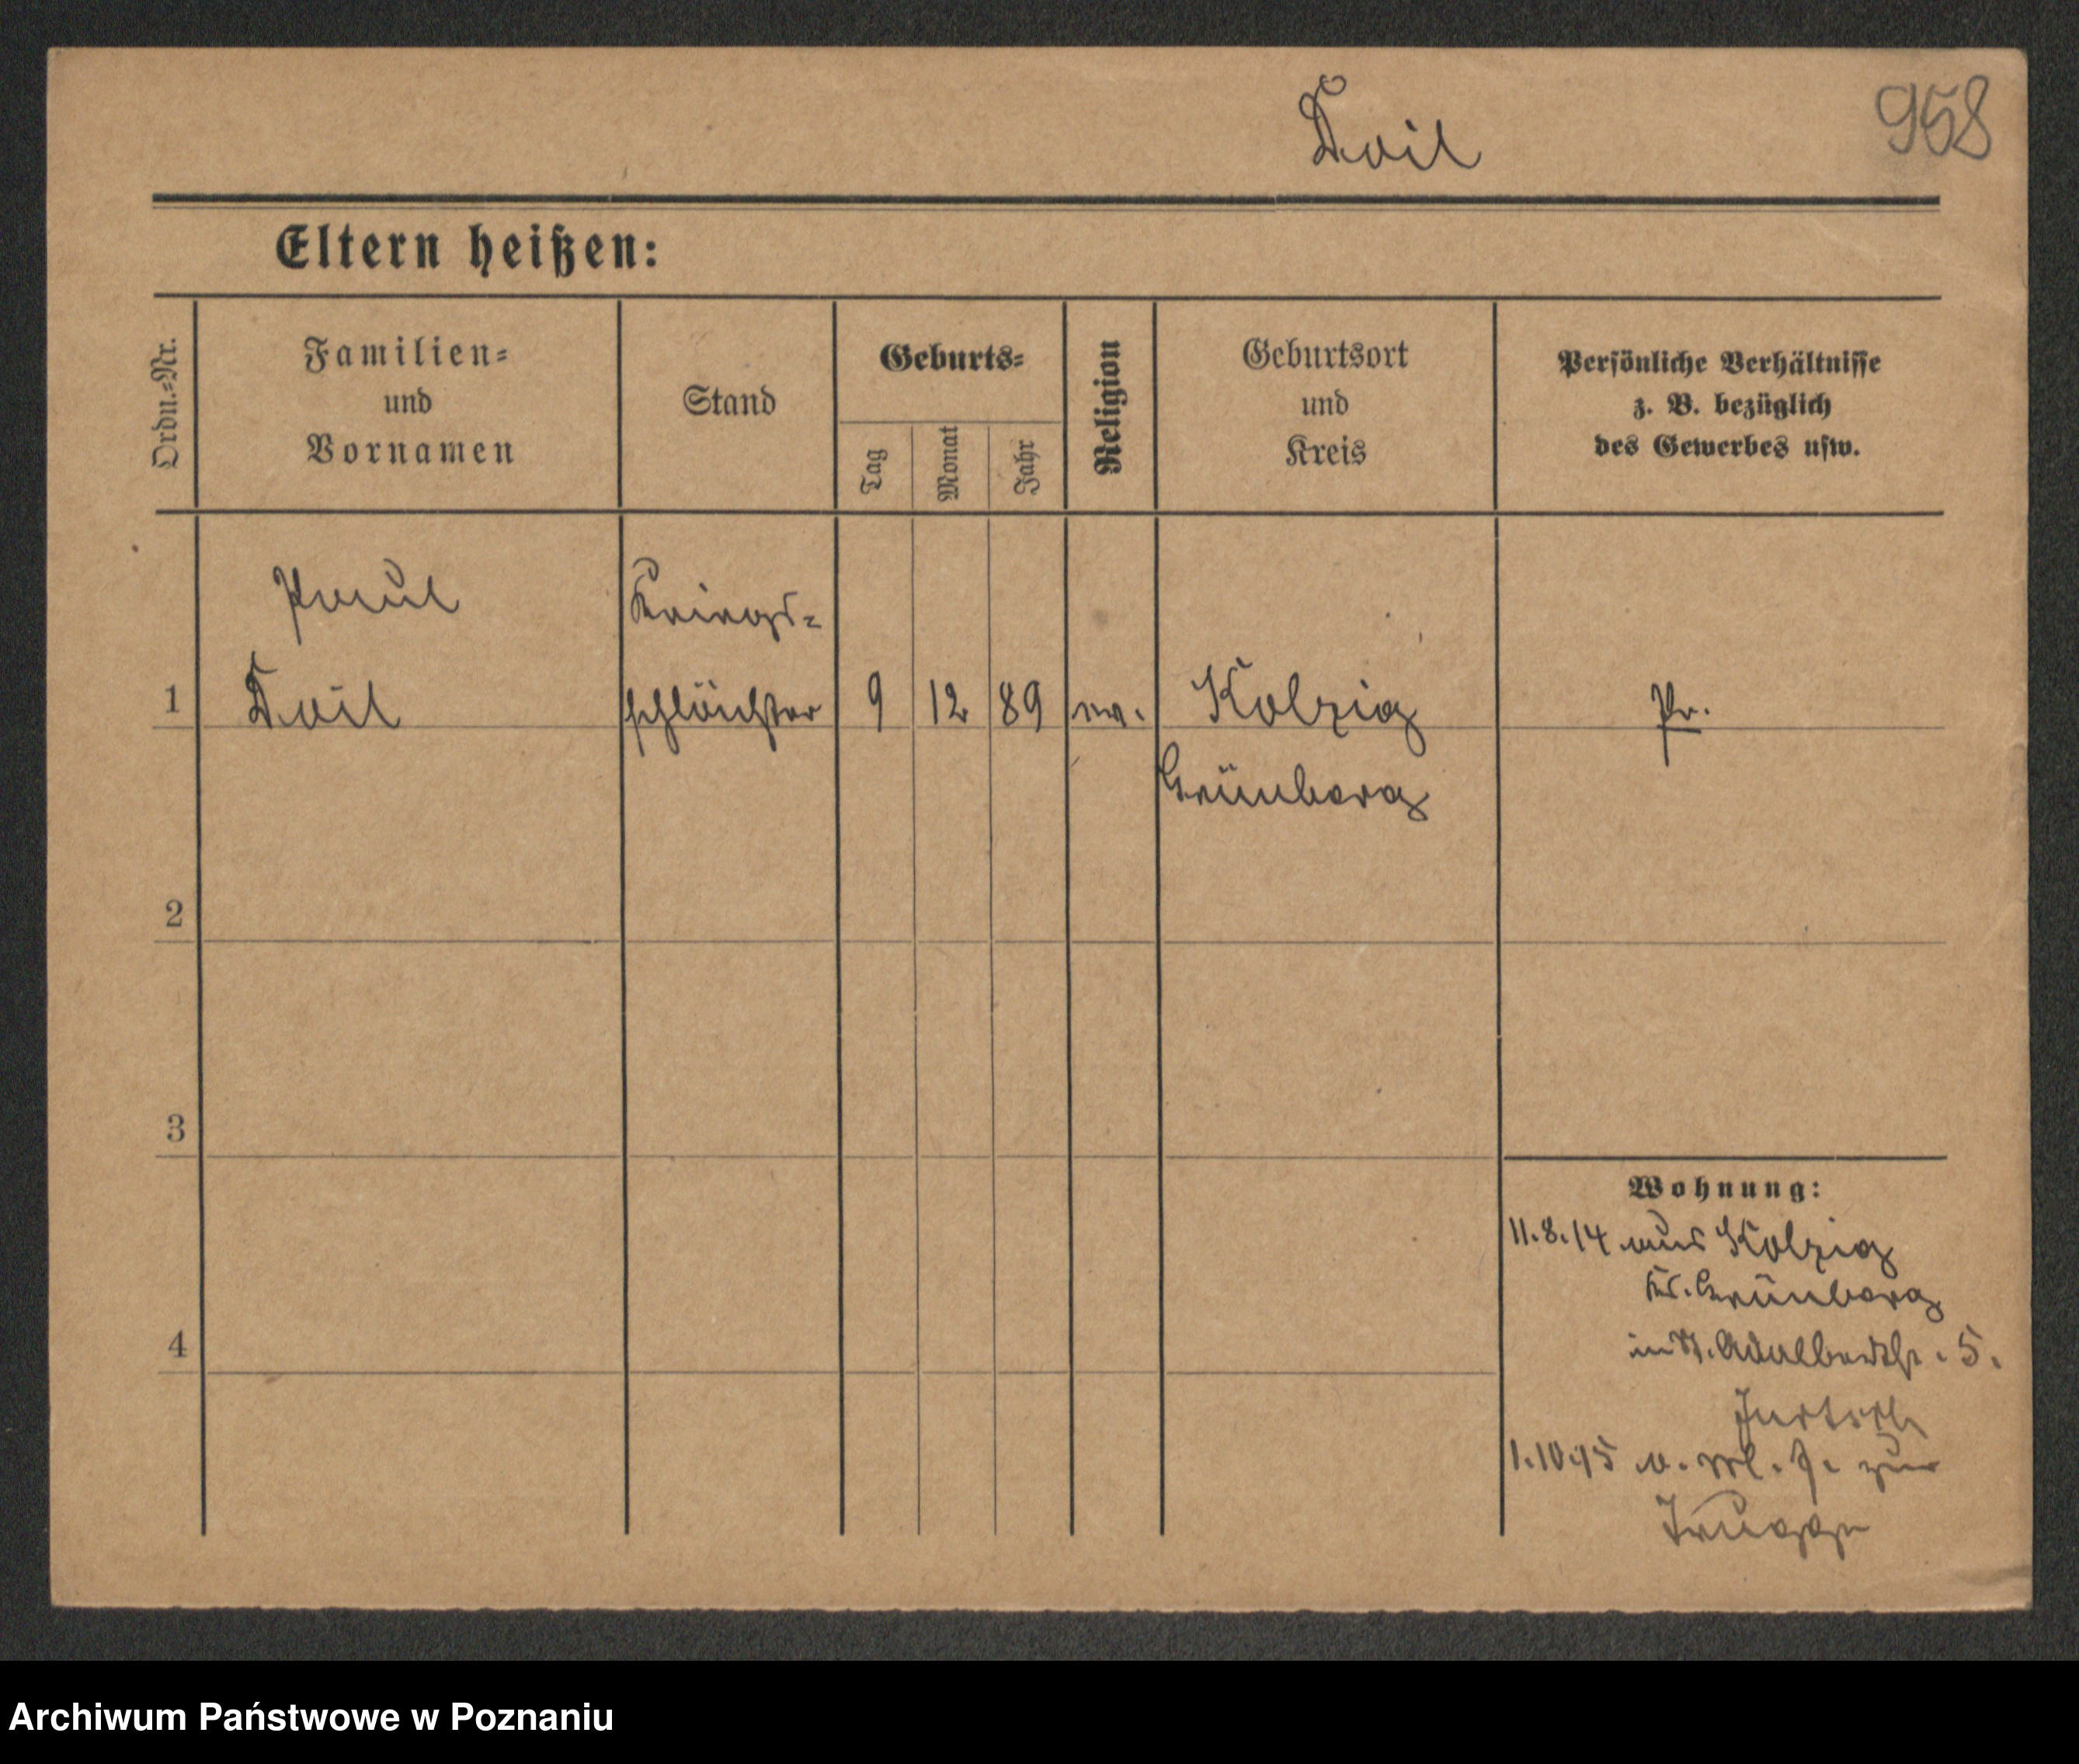 Doil
958
Eltern heißen:
Ordn.-Nr.
Familien-
und
Vornamen
Stand
Geburts-
Tag
Monat
Jahr
Religion
Geburtsort
und
Kreis
Persönliche Verhältnisse
z. B. bezüglich
des Gewerbes usw.
Paul
Kriegs-
1
Doil
schlächter
9
12
89
ev.
Kolzig
Pr.
Grünberg
2
3
Wohnung:
11.8.14 aus Kolzig
Kr. Grünberg
4
in St. Adalbertstr. 5.
1.10.15 v. zur
Truppe
Archiwum Państwowe w Poznaniu